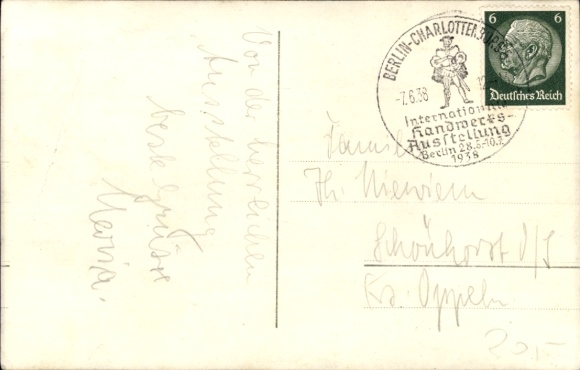 Von der herrlichen
Ausstellung
beste Grüsse
Maria.
BERLIN-CHARLOTTENBURG
-7.6.38
12
Internationale
Handwerks-
Ausstellung
Berlin 28.5.-10.7.
1938
6 6
Deutsches Reich
Familie
Th. Niewiem
Schönhorst O/S
Krs. Oppeln
20,-